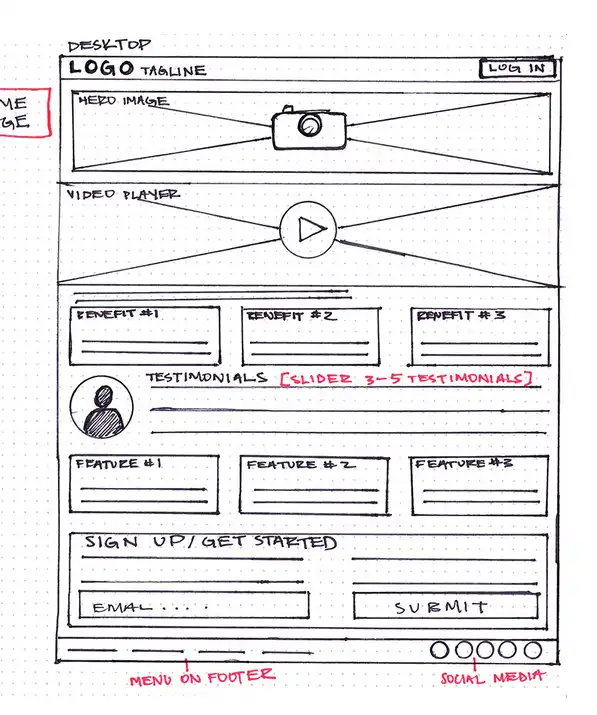 DESKTOP
LOGO TAGLINE
LOG IN
ME
GE
HERO IMAGE
VIDEO PLAYER
BENEFIT #1
BENEFIT #2
BENEFIT #3
TESTIMONIALS [SLIDER 3-5 TESTIMONIALS]
FEATURE #1
FEATURE #2
FEATURE #3
SIGN UP/GET STARTED
EMAL ....
SUBMIT
MENU ON FOOTER
SOCIAL MEDIA